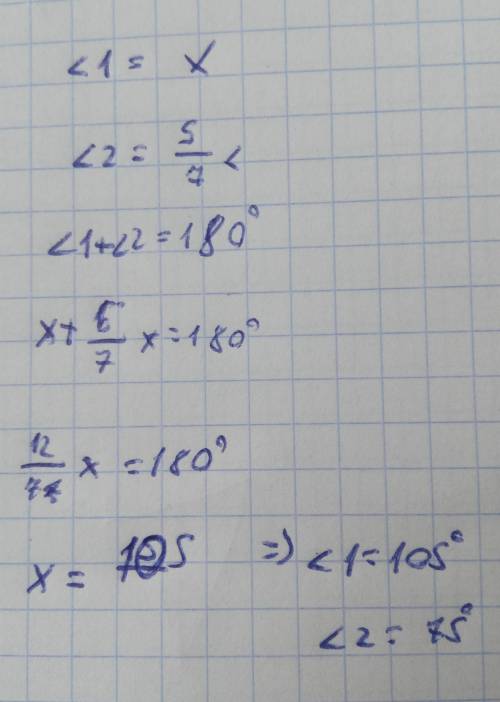 ∠1 = x
∠2 = 5/7 ∠
∠1+∠2 = 180°
x + 5/7 x = 180°
12/7 x = 180°
x = 105 => ∠1 = 105°
∠2 = 75°